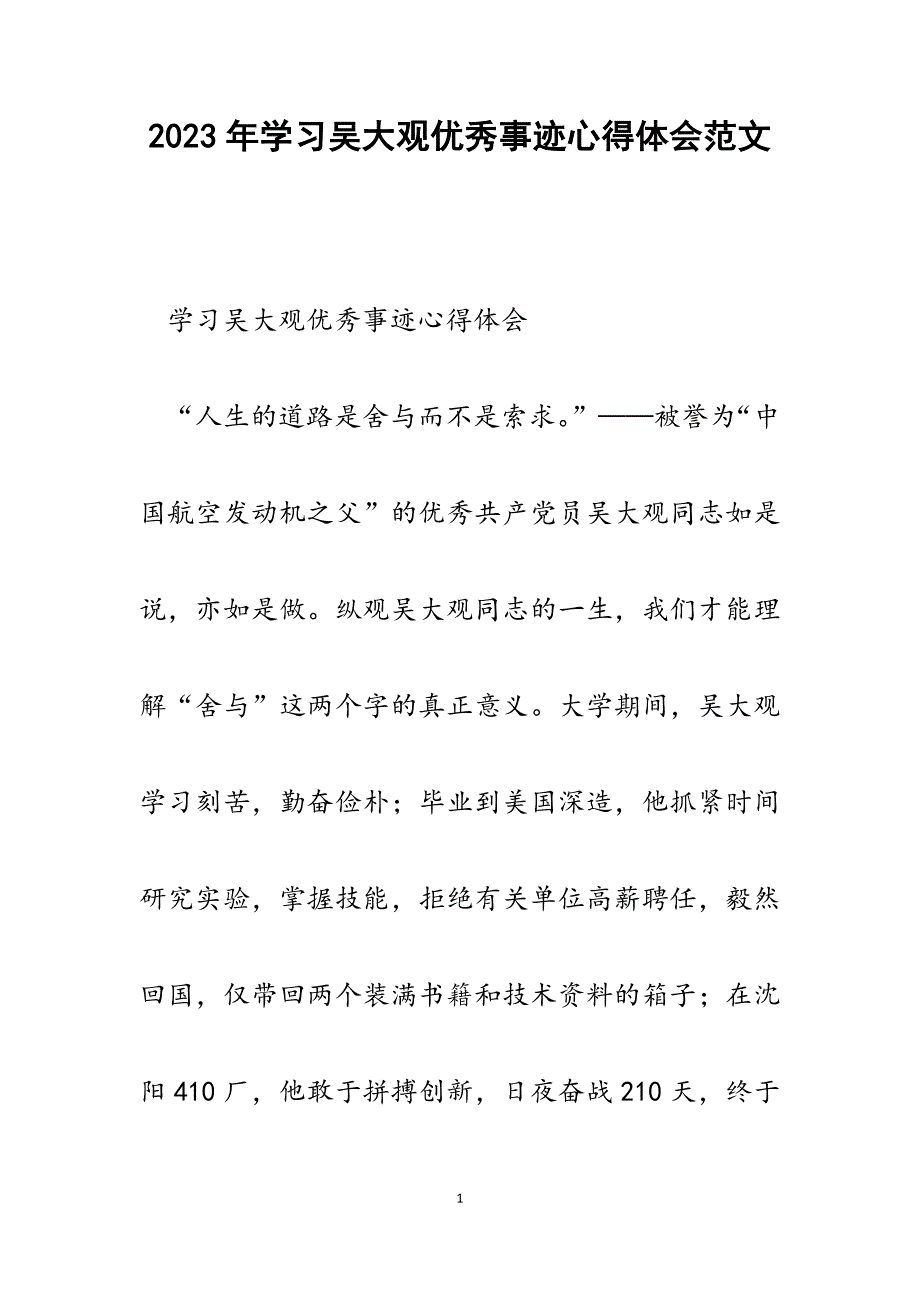 2023年学习吴大观优秀事迹心得体会范文
学习吴大观优秀事迹心得体会
“人生的道路是舍与而不是索求。”——被誉为“中
国航空发动机之父”的优秀共产党员吴大观同志如是
说，亦如是做。纵观吴大观同志的一生，我们才能理
解“舍与”这两个字的真正意义。大学期间，吴大观
学习刻苦，勤奋俭朴；毕业到美国深造，他抓紧时间
研究实验，掌握技能，拒绝有关单位高薪聘任，毅然
回国，仅带回两个装满书籍和技术资料的箱子；在沈
阳410厂，他敢于拼搏创新，日夜奋战210天，终于
1